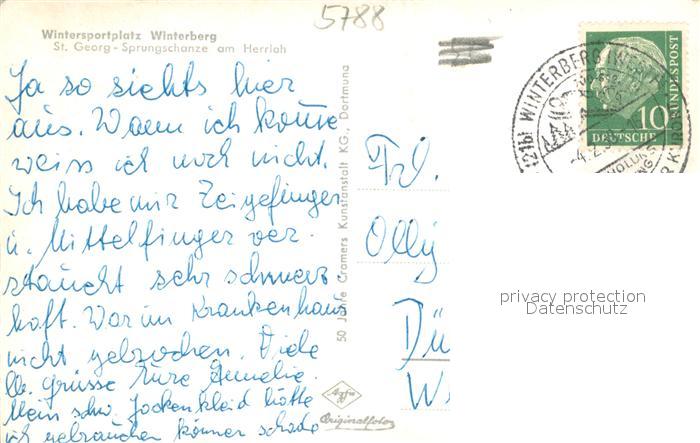 5788
Wintersportplatz Winterberg
St. Georg-Sprungschanze am Herrloh
Ja so siehts hier
aus. Wann ich komme
weiss ich noch nicht.
Ich habe mir Zeigefinger
u. Mittelfinger ver-
staucht sehr schmerz
haft. War im Krankenhaus
nicht gebrochen. Viele
lb. Grüsse Eure Annelie.
Mein schw. Jackenkleid hätte
ich gebrauchen können schade
50 Jahre Cramers Kunstanstalt KG., Dortmund
Agfa
Originalfoto
Frl.
Olly
Dü
W
(21b) WINTERBERG (WESTF
DEUTSCHE BUNDESPOST
10
privacy protection
Datenschutz